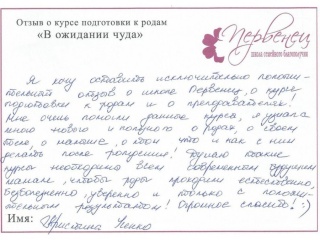 Отзыв о курсе подготовки к родам
«В ожидании чуда»
Первенец
школа семейного благополучия
Я хочу оставить исключительно положи-
тельный отзыв о школе Первенец, о курсе
подготовки к родам и о преподавателях!
Мне очень помогли данные курсы, я узнала
много нового и полезного о родах, о своём
теле, о малыше, о том что и как с ним
делать после рождения! Думаю такие
курсы необходимы всем современным будущим
мамам, чтобы роды проходили естественно,
безболезненно, уверенно и только с положи-
тельным результатом! Огромное спасибо! :)
Имя: Кристина